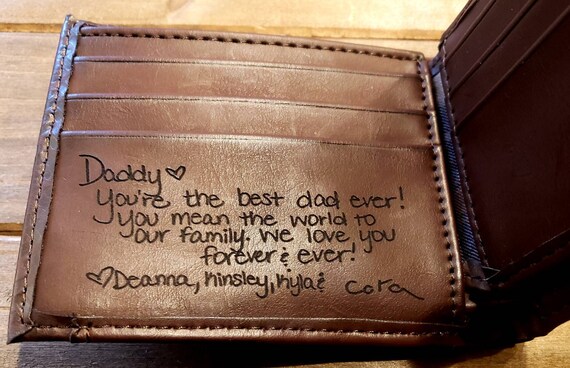 Daddy ♡
You're the best dad ever!
you mean the world to
our family. We love you
forever & ever!
♡Deanna, Kinsley, Kyla & Cora